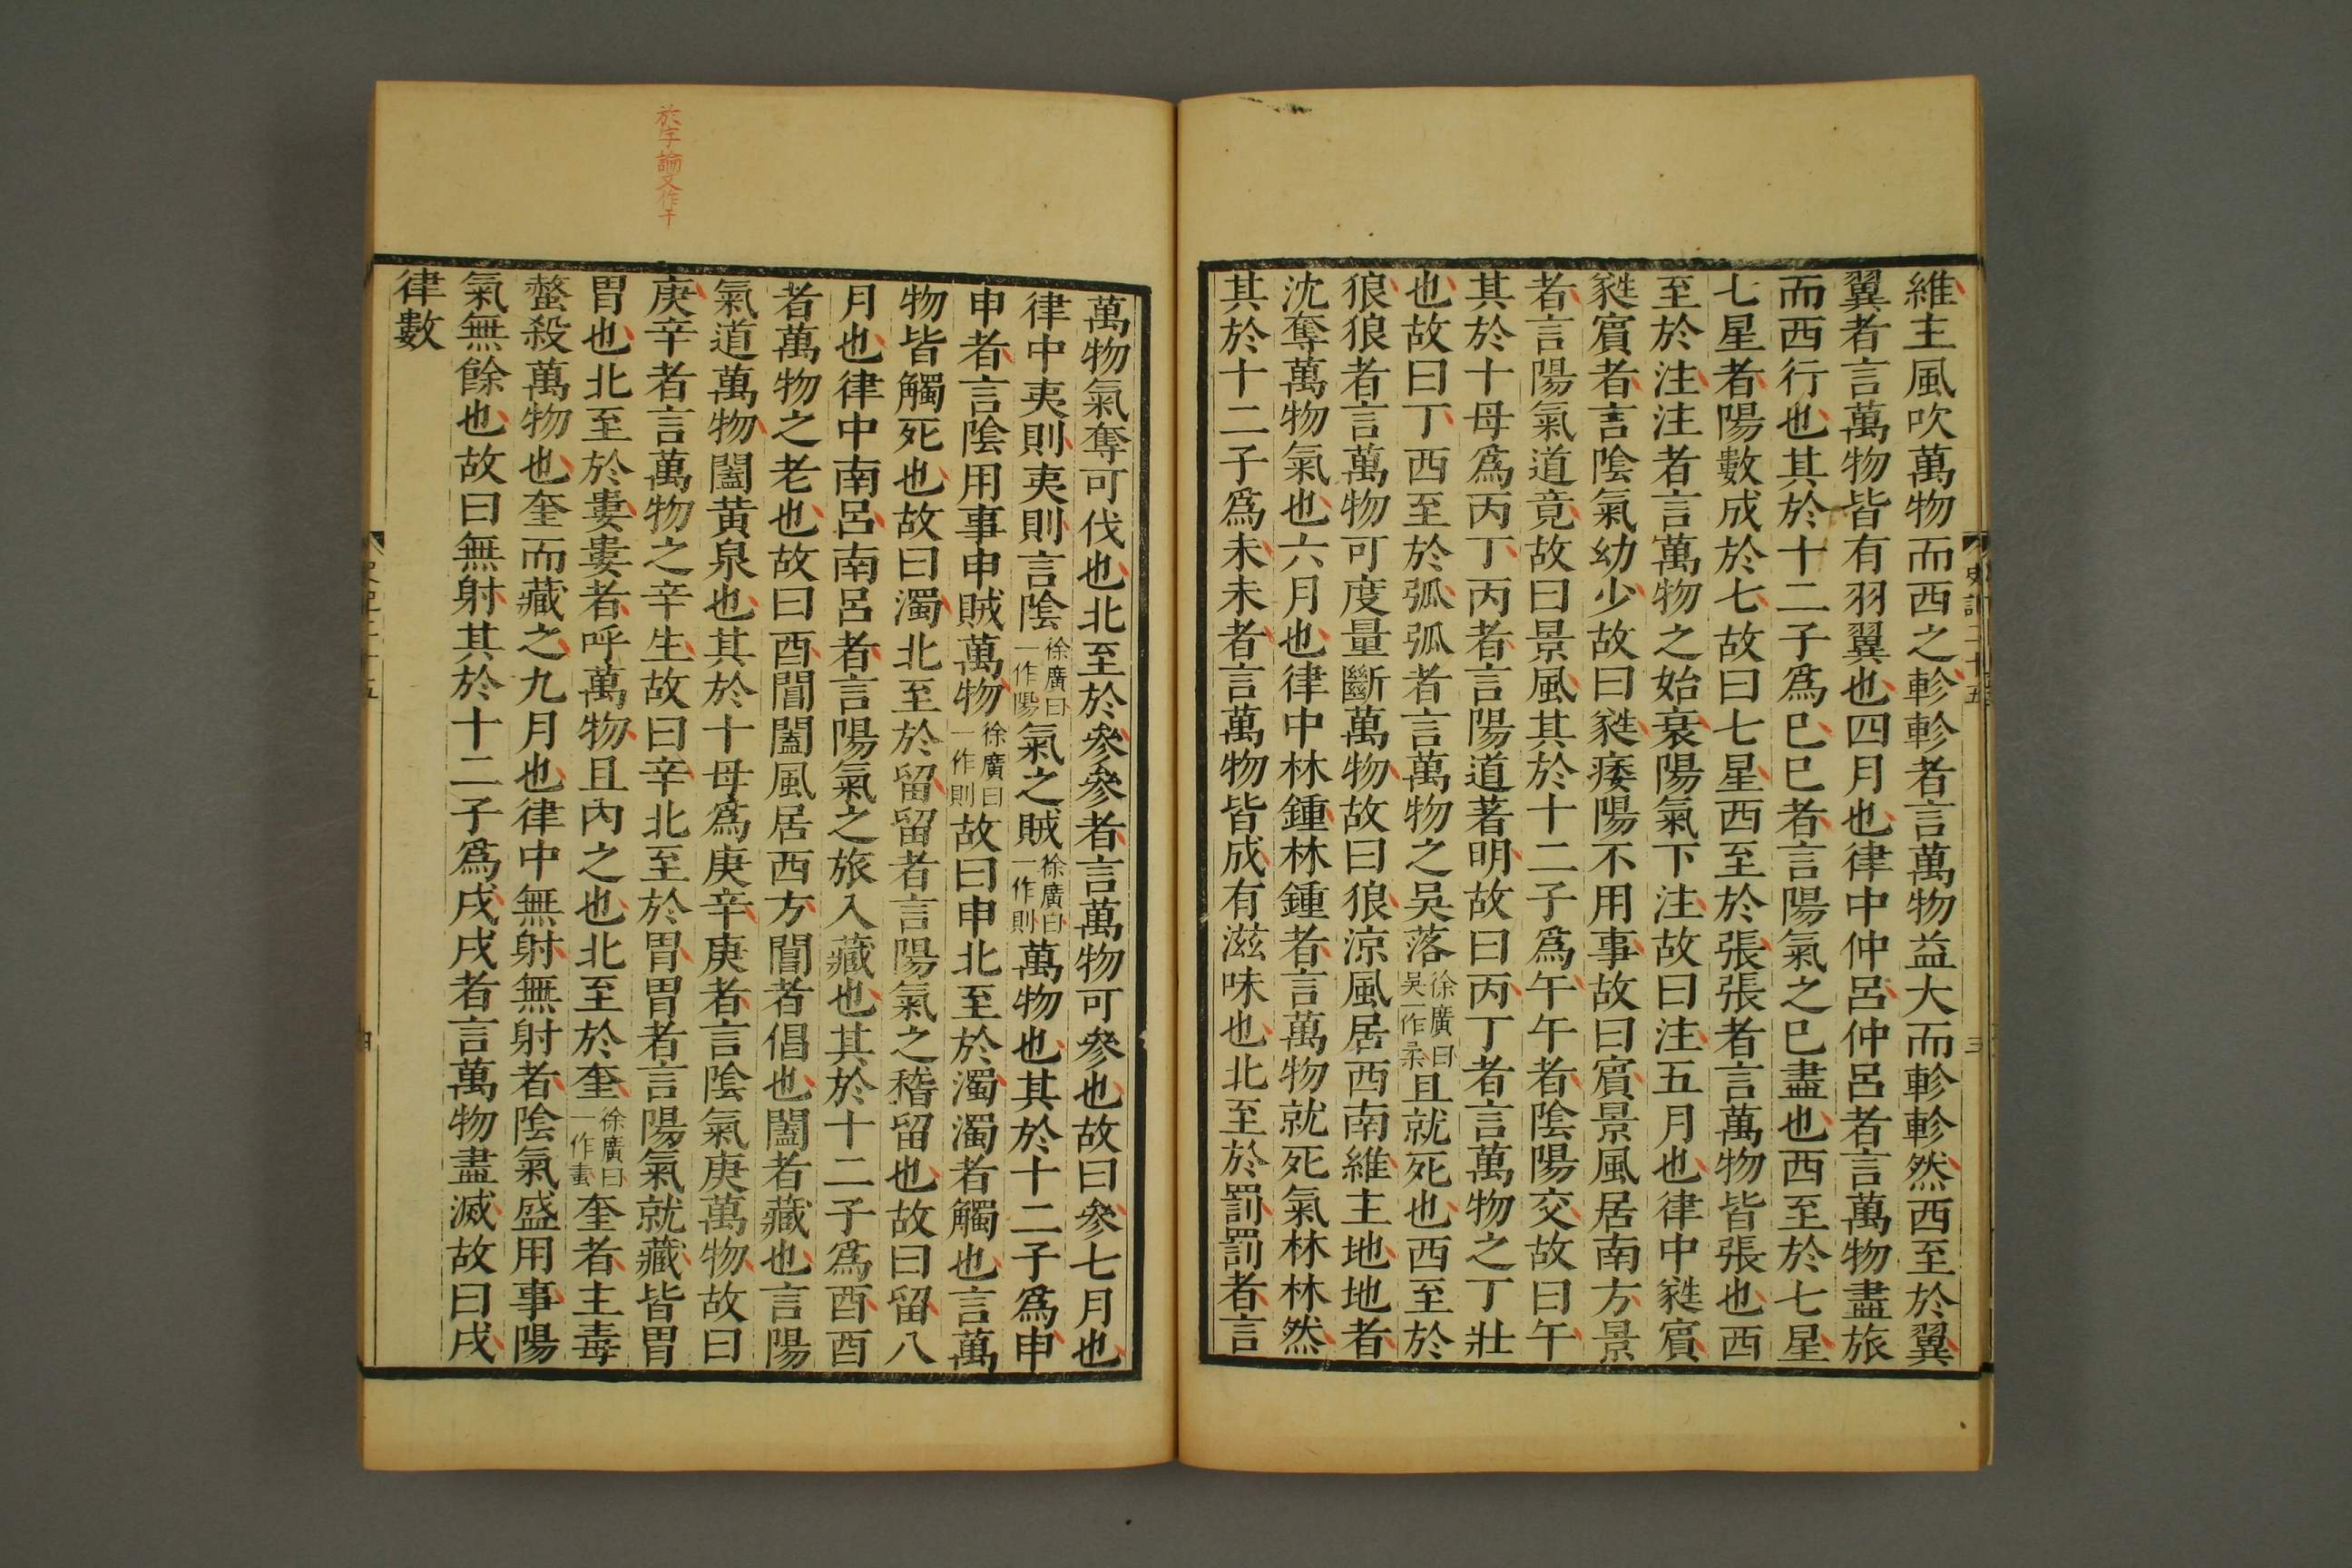 維主風吹萬物而西之軫軫者言萬物益大而軫軫然西至於翼
翼者言萬物皆有羽翼也四月也律中仲呂仲呂者言萬物盡旅
而西行也其於十二子爲巳巳者言陽氣之巳盡也西至於七星
七星者陽數成於七故曰七星西至於張張者言萬物皆張也西
至於注注者言萬物之始衰陽氣下注故曰注五月也律中蕤賓
蕤賓者言陰氣幼少故曰蕤痿陽不用事故曰賓景風居南方景
者言陽氣道竟故曰景風其於十二子爲午午者陰陽交故曰午
其於十母爲丙丁丙者言陽道著明故曰丙丁者言萬物之丁壯
也故曰丁西至於弧弧者言萬物之吳落徐廣曰吳一作柔且就死也西至於
狼狼者言萬物可度量斷萬物故曰狼涼風居西南維主地地者
沈奪萬物氣也六月也律中林鍾林鍾者言萬物就死氣林林然
其於十二子爲未未者言萬物皆成有滋味也北至於罰罰者言
史記二十五
三
於字論文作于
萬物氣奪可伐也北至於參參者言萬物可參也故曰參七月也
律中夷則夷則言陰徐廣曰一作陽氣之賊徐廣曰一作則萬物也其於十二子爲申
申者言陰用事申賊萬物徐廣曰一作則故曰申北至於濁濁者觸也言萬
物皆觸死也故曰濁北至於留留者言陽氣之稽留也故曰留八
月也律中南呂南呂者言陽氣之旅入藏也其於十二子爲酉酉
者萬物之老也故曰酉閶闔風居西方閶者倡也闔者藏也言陽
氣道萬物闔黃泉也其於十母爲庚辛庚者言陰氣庚萬物故曰
庚辛者言萬物之辛生故曰辛北至於胃胃者言陽氣就藏皆胃
胃也北至於婁婁者呼萬物且內之也北至於奎徐廣曰一作畫奎者主毒
螫殺萬物也奎而藏之九月也律中無射無射者陰氣盛用事陽
氣無餘也故曰無射其於十二子爲戌戌者言萬物盡滅故曰戌
律數